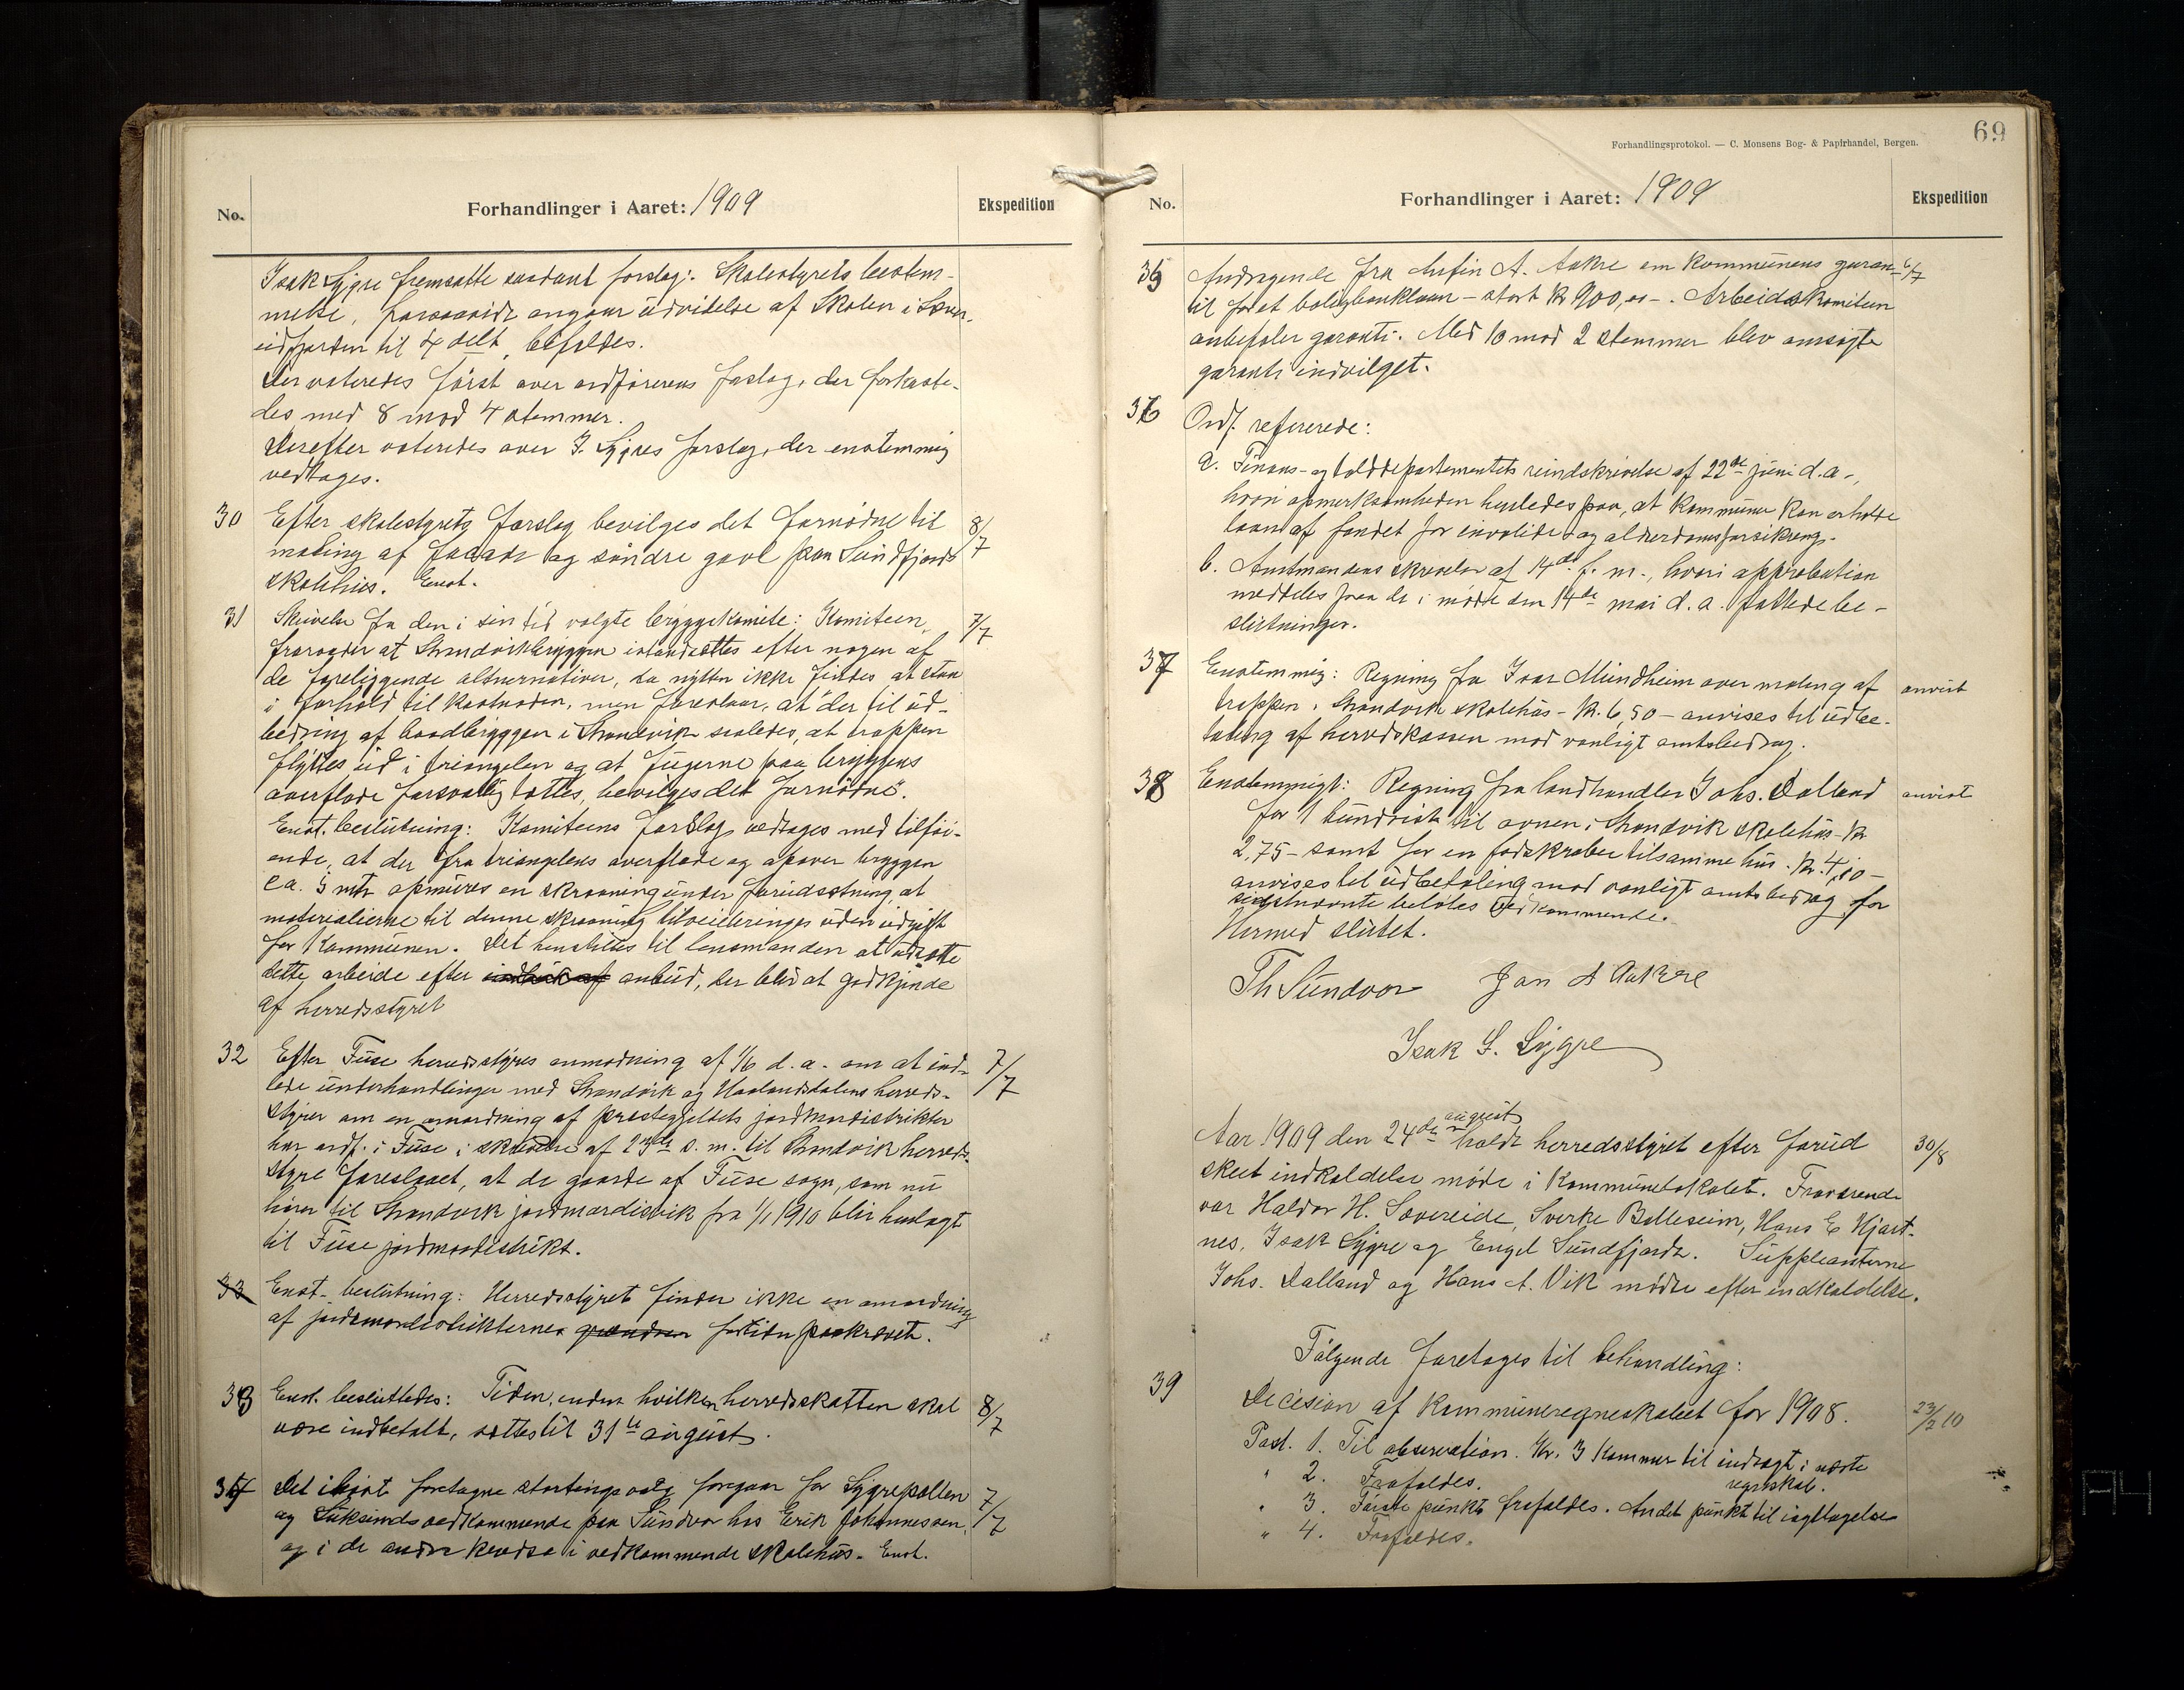 No.
Forhandlinger i Aaret: 1909
Ekspedition
Isak Lygre fremsatte saadant forslag: Skolestyrets bestem-
melse, forsaavidt angaar udvidelse af Skolen i Sæver-
eidfjorden til 4 delt, bifaldes.
Der voteredes først over ordførerens forslag, der forkaste-
des med 8 mod 4 stemmer.
Derefter voteredes over I. Lygres forslag, der enstemmig
vedtages.
30 Efter skolestyrets forslag bevilges det fornødne til 8/7
maling af facade og søndre gavl paa Sundfjords
skolehus. Enst.
31 Skrivelse fra den i sin tid valgte bryggekomite: Komiteen 7/7
fraraader at Strandvikbryggen istandsættes efter nogen af
de foreliggende alternativer, da nytten ikke findes at staa
i forhold til kostnaden, men foreslaar, at der til ud-
bedring af baadbryggen i Strandvik saaledes, at trappen
flyttes ud i triangelen og at fugerne paa bryggens
overflade forsvarlig tættes, bevilges det fornødne.
Enst. beslutning: Komiteens forslag vedtages med tilføi-
ende, at der fra triangelens overflade og opover bryggen
ca. 5 mtr opmures en skraaning under forudsætning, at
materialierne til denne skraaning tilveiebringes uden udgift
for kommunen. Det henstilles til lensmanden at udsætte
dette arbeide efter anbud, der blir at godkjende
af herredsstyret
32 Efter Fuse herredsstyres anmodning af 1/6 d. a. om at ind- 7/7
lede underhandlinger med Strandvik og Haalandsdalens herreds-
styrer om en omordning af præstegjeldets jordmordistrikter
har ordf. i Fuse i skrivelse af 23de s. m. til Strandvik herreds-
styre foreslaaet, at de gaarde af Fuse sogn, som nu
hører til Strandvik jordmordistrik fra 1/1 1910 blir henlagt
til Fuse jordmordistrikt.
33 Enst. beslutning: Herredsstyret finder ikke en omordning
af jordmordistrikterne grændser for tiden paakrævet.
33 Enst. besluttedes: Tiden, inden hvilken herredsskatten skal 8/7
være indbetalt, sættes til 31te august.
34 Det i høst foretagne stortingsvalg foregaar for Lygrepollen 7/7
og Luksunds vedkommende paa Sundvor hos Erik Johannessen,
og i de andre kredse i vedkommende skolehus. Enst.
69
Forhandlingsprotokol. — C. Monsens Bog- & Papirhandel, Bergen.
No.
Forhandlinger i Aaret: 1909
Ekspedition
35 Andragende fra Anfin A. Aakre om kommunens garan- 6/7
til for et boligbanklaan – stort kr 900,00 –. Arbeidskomiteen
anbefaler garanti. Med 10 mod 2 stemmer blev ansøgte
garanti indvilget.
36 Ordf. refererede:
a. Finans- og tolddepartementets rundskrivelse af 22de juni d. a.,
hvori opmerksomheden henledes paa, at kommuner kan erholde
laan af fondet for invalide- og alderdomsforsikring.
b. Amtmandens skrivelse af 14de f. m., hvori approbation
meddeles paa de i møde den 14de mai d. a. fattede be-
slutninger.
37 Enstemmig: Regning fra Ivar Mundheim over maling af anvist
trappen i Strandvik skolehus – kr. 6,50 – anvises til udbe-
taling af herredskassen mod vanligt amtsbidrag.
38 Enstemmigt: Regning fra landhandler Johs. Dalland anvist
for 1 bundrist til ovnen i Strandvik skolehus kr
2,75 – samt for en fodskraber til samme hus kr. 4,10 –
anvises til udbetaling mod vanligt amtsbidrag for
sidstnævnte beløbs vedkommende.
Hermed sluttet.
Th Sundvor Jan A Aakre
Isak S. Lygre
Aar 1909 den 24de august holdt herredsstyret efter forud 30/8
skeet indkaldelse møde i kommunelokalet. Fraværende
var Haldor H. Sævereide, Sverke Bolleseim, Hans E Hjart-
nes, Isak Lygre og Engel Sundfjord. Suppleanterne
Johs. Dalland og Hans A. Vik mødte efter indkaldelse.
Følgende foretages til behandling:
39 Decision af kommuneregnskabet for 1908. 23/2 10
Post. 1. Til observation. Kr. 3 kommer til indtægt i næste
regnskab.
" 2. Frafaldes.
" 3. Første punkt frafaldes. Andet punkt til iagttagelse
" 4. Frafaldes.